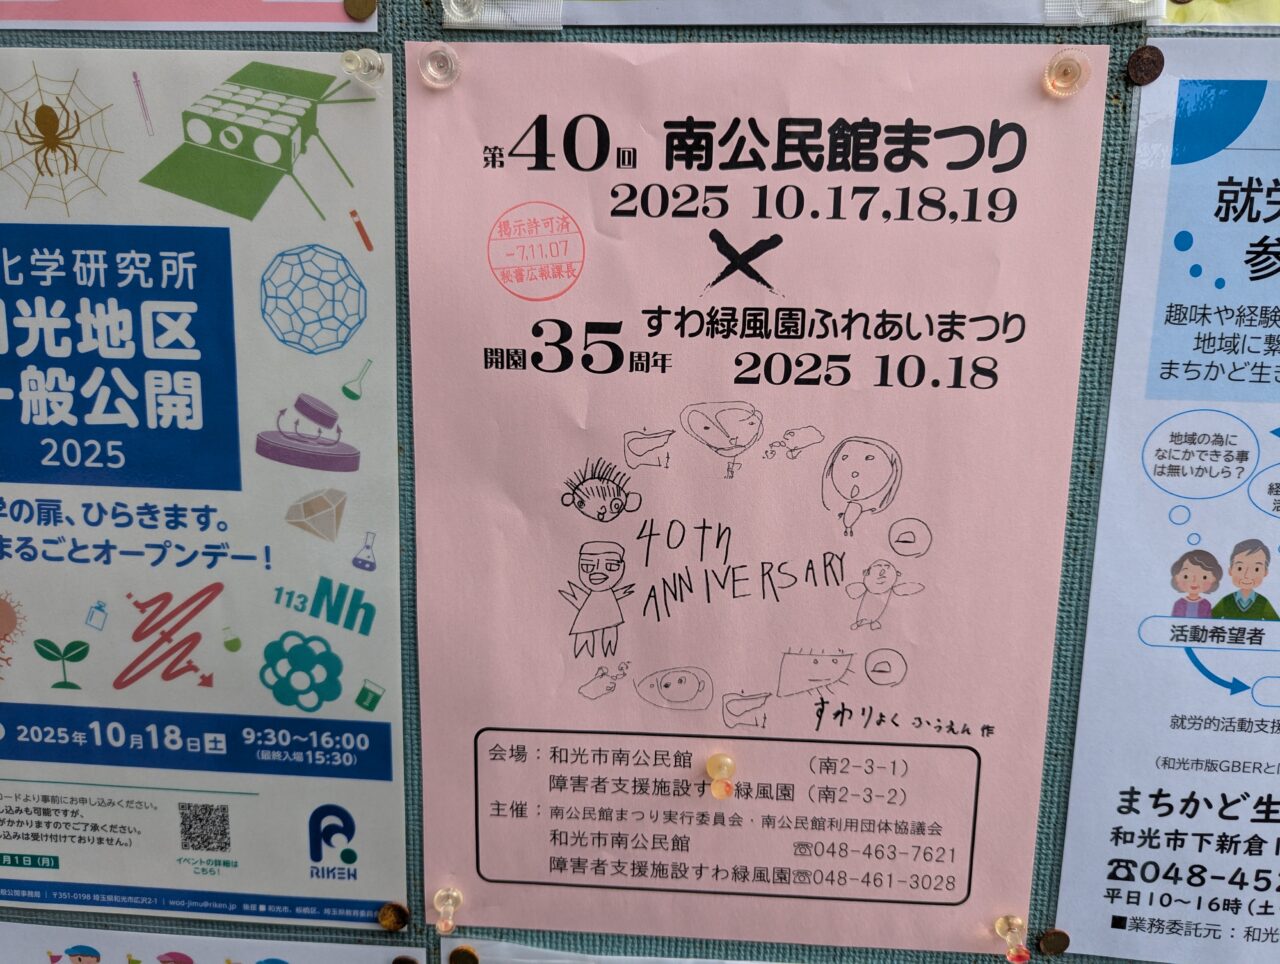 化学研究所
和光地区
一般公開
2025
学の扉、ひらきます。
まるごとオープンデー!
113Nh
2025年10月18日土
9:30～16:00
(最終入場15:30)
コードより事前にお申し込みください。
し込みも可能ですが、
がかかりますのでご了承ください。
し込みは受け付けておりません。)
月1日(月)
イベントの詳細は
こちら!
RIKEN
〒351-0198 埼玉県和光市広沢2-1 | wod-jimu@riken.jp
第40回 南公民館まつり
2025 10.17,18,19
掲示許可済
-7.11.07
秘書広報課長
×
開園35周年
すわ緑風園ふれあいまつり
2025 10.18
40th
ANNIVERSARY
すわりょくふうえん 作
会場：和光市南公民館 (南2-3-1)
障害者支援施設すわ緑風園 (南2-3-2)
主催：南公民館まつり実行委員会・南公民館利用団体協議会
和光市南公民館 ☎048-463-7621
障害者支援施設すわ緑風園☎048-461-3028
就労
参
趣味や経験
地域に繋
まちかど生き
地域の為に
なにかできる事
は無いかしら?
経
活
活動希望者
就労的活動支援
(和光市版GBERとは
まちかど生
和光市下新倉
☎048-452
平日10～16時(土
■業務委託元：和光